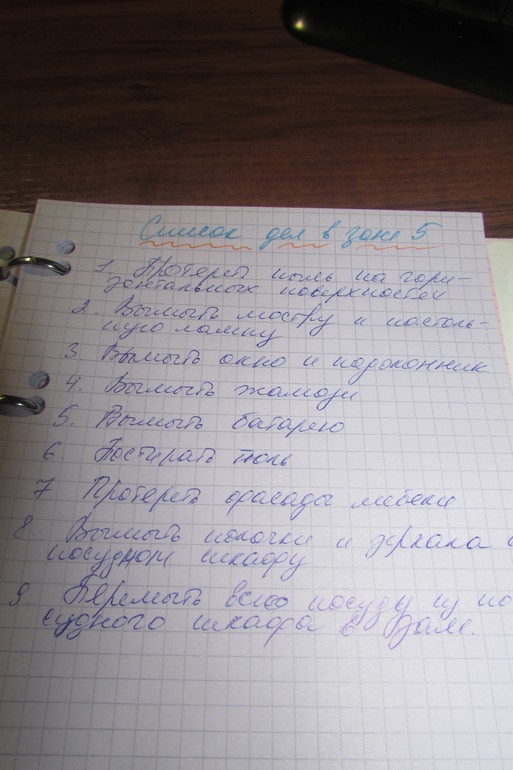 Список дел в зоне 5
1. Протереть пыль на гори-
зонтальных поверхностях
2. Вымыть люстру и настоль-
ную лампу
3. Вымыть окно и подоконник
4. Вымыть жалюзи
5. Вымыть батарею
6. Постирать тюль
7 Протереть фасады мебели
8. Вымыть полочки и зеркала
посудном шкафу
9 Перемыть всю посуду из по
судного шкафа в зале.